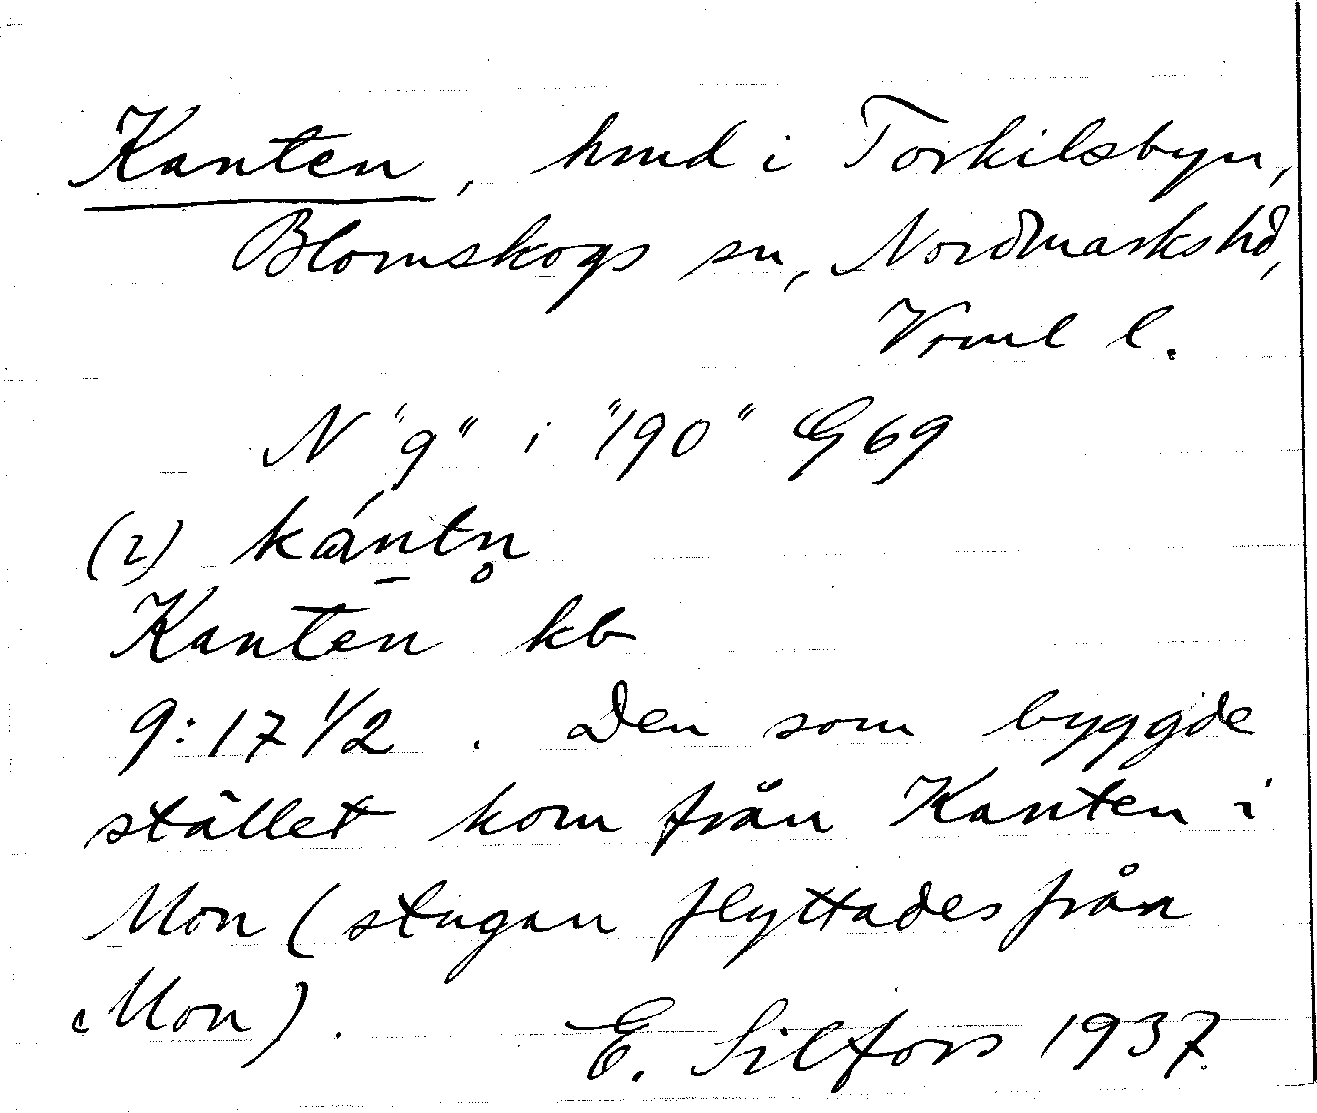 Kanten, hmd i Torkilsbyn,
Blomskogs sn, Nordmarks hd,
Vrml l.
N "9" i "190" G69
(2) kántn̥
Kanten kb
9:17 1/2. Den som byggde
stället kom från Kanten i
Mon (stugan flyttades från
Mon).
E. Silfors 1937.